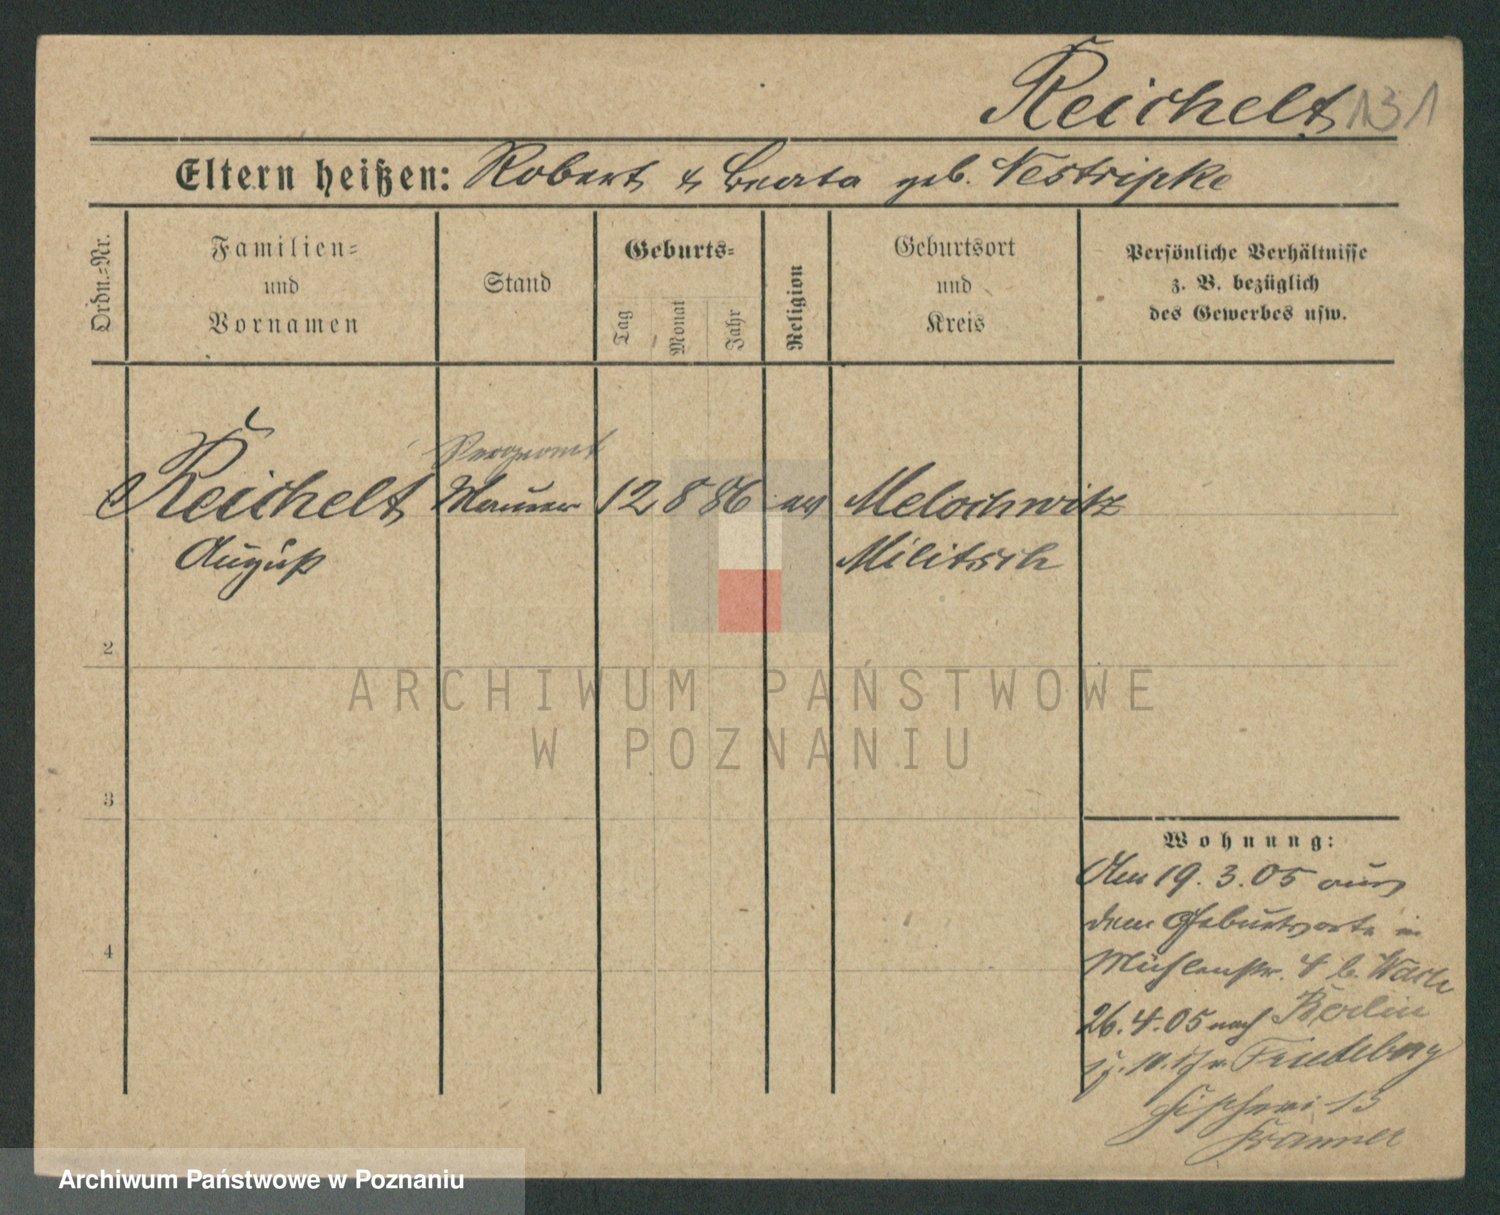 Reichelt 131
Eltern heißen: Robert & Beata geb. Nestripke
Ordn.=Nr.
Familien=
und
Vornamen
Stand
Geburts=
Tag
Monat
Jahr
Religion
Geburtsort
und
Kreis
Persönliche Verhältnisse
z. B. bezüglich
des Gewerbes usw.
Reichelt Maurer 12 8 86 ev Melochwitz
August Militsch
2
3
4
Wohnung:
Am 19.3.05 aus
dem Geburtsorte in
Mühlenstr. 4 b.
26.4.05 nach Berlin
Friedeberg
13
ARCHIWUM PAŃSTWOWE
W POZNANIU
Archiwum Państwowe w Poznaniu